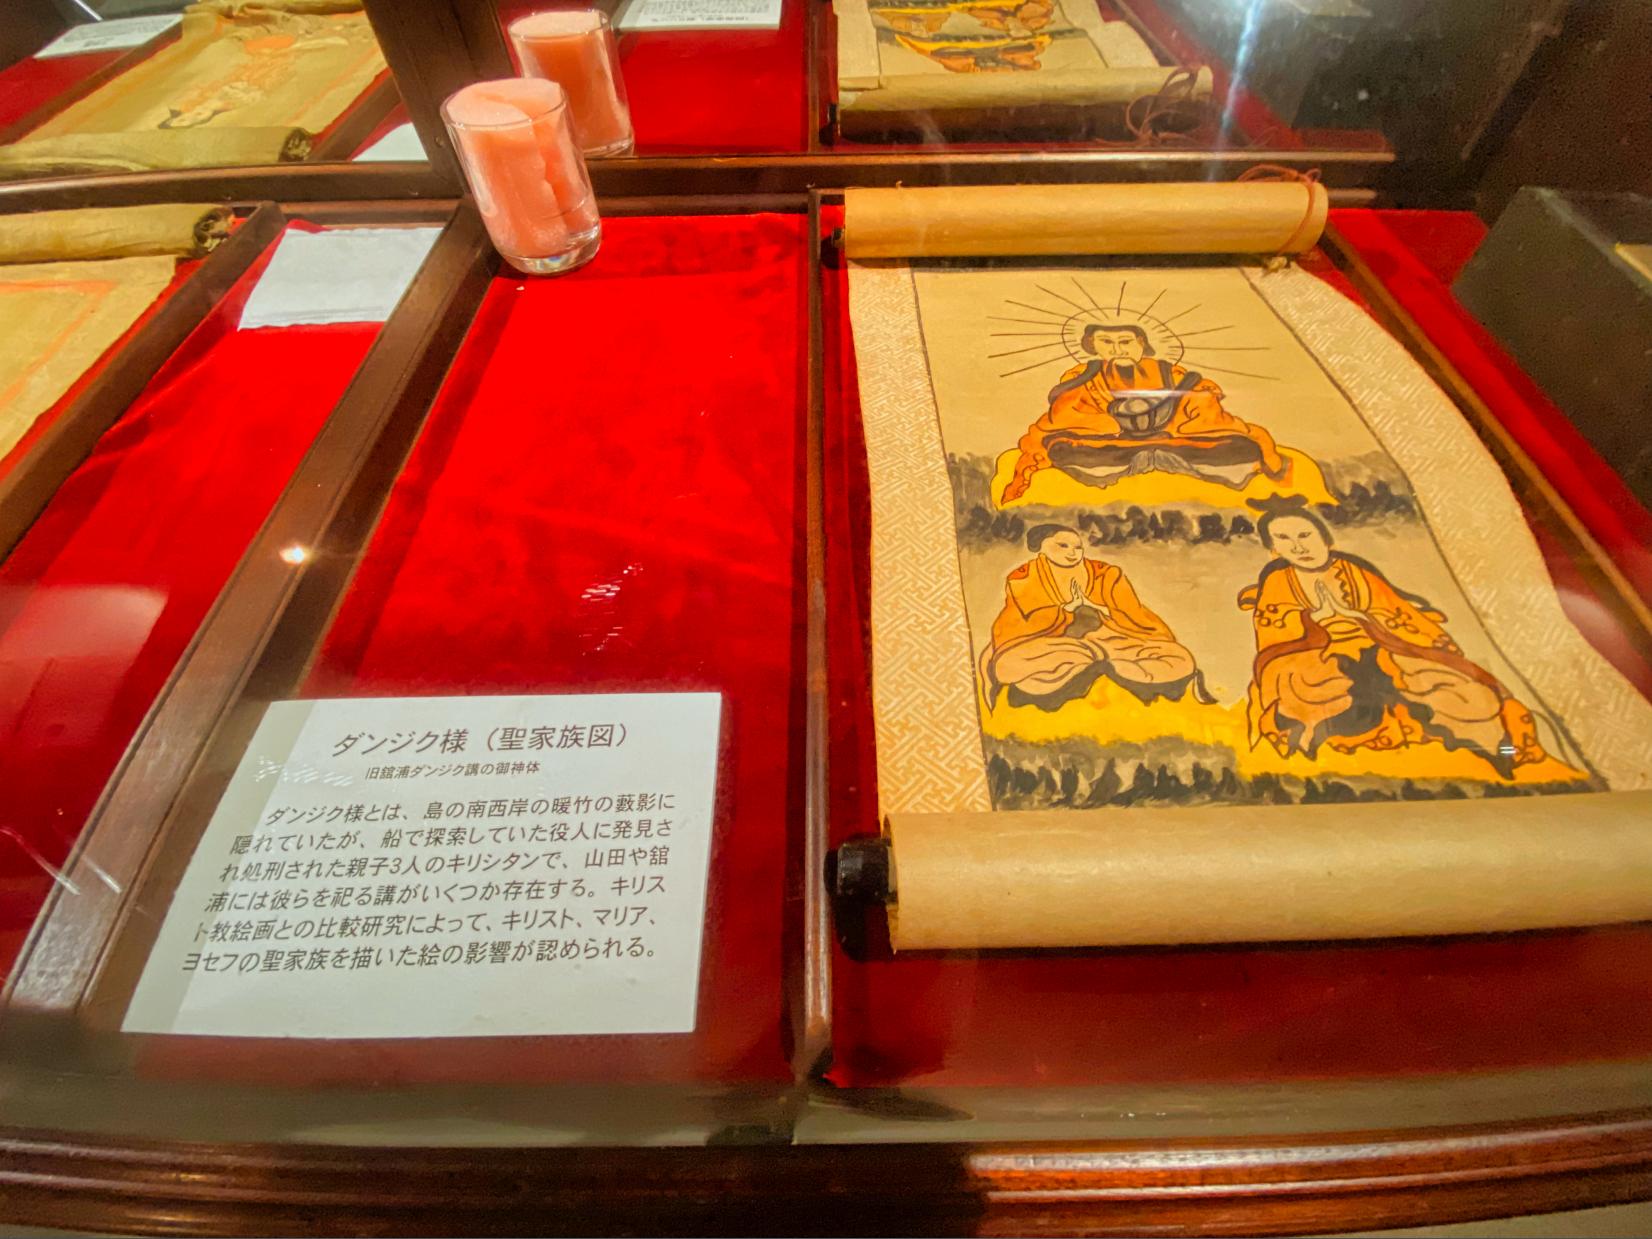 ダンジク様（聖家族図）
旧舘浦ダンジク講の御神体
ダンジク様とは、島の南西岸の暖竹の藪影に
隠れていたが、船で探索していた役人に発見さ
れ処刑された親子3人のキリシタンで、山田や舘
浦には彼らを祀る講がいくつか存在する。キリス
ト教絵画との比較研究によって、キリスト、マリア、
ヨセフの聖家族を描いた絵の影響が認められる。